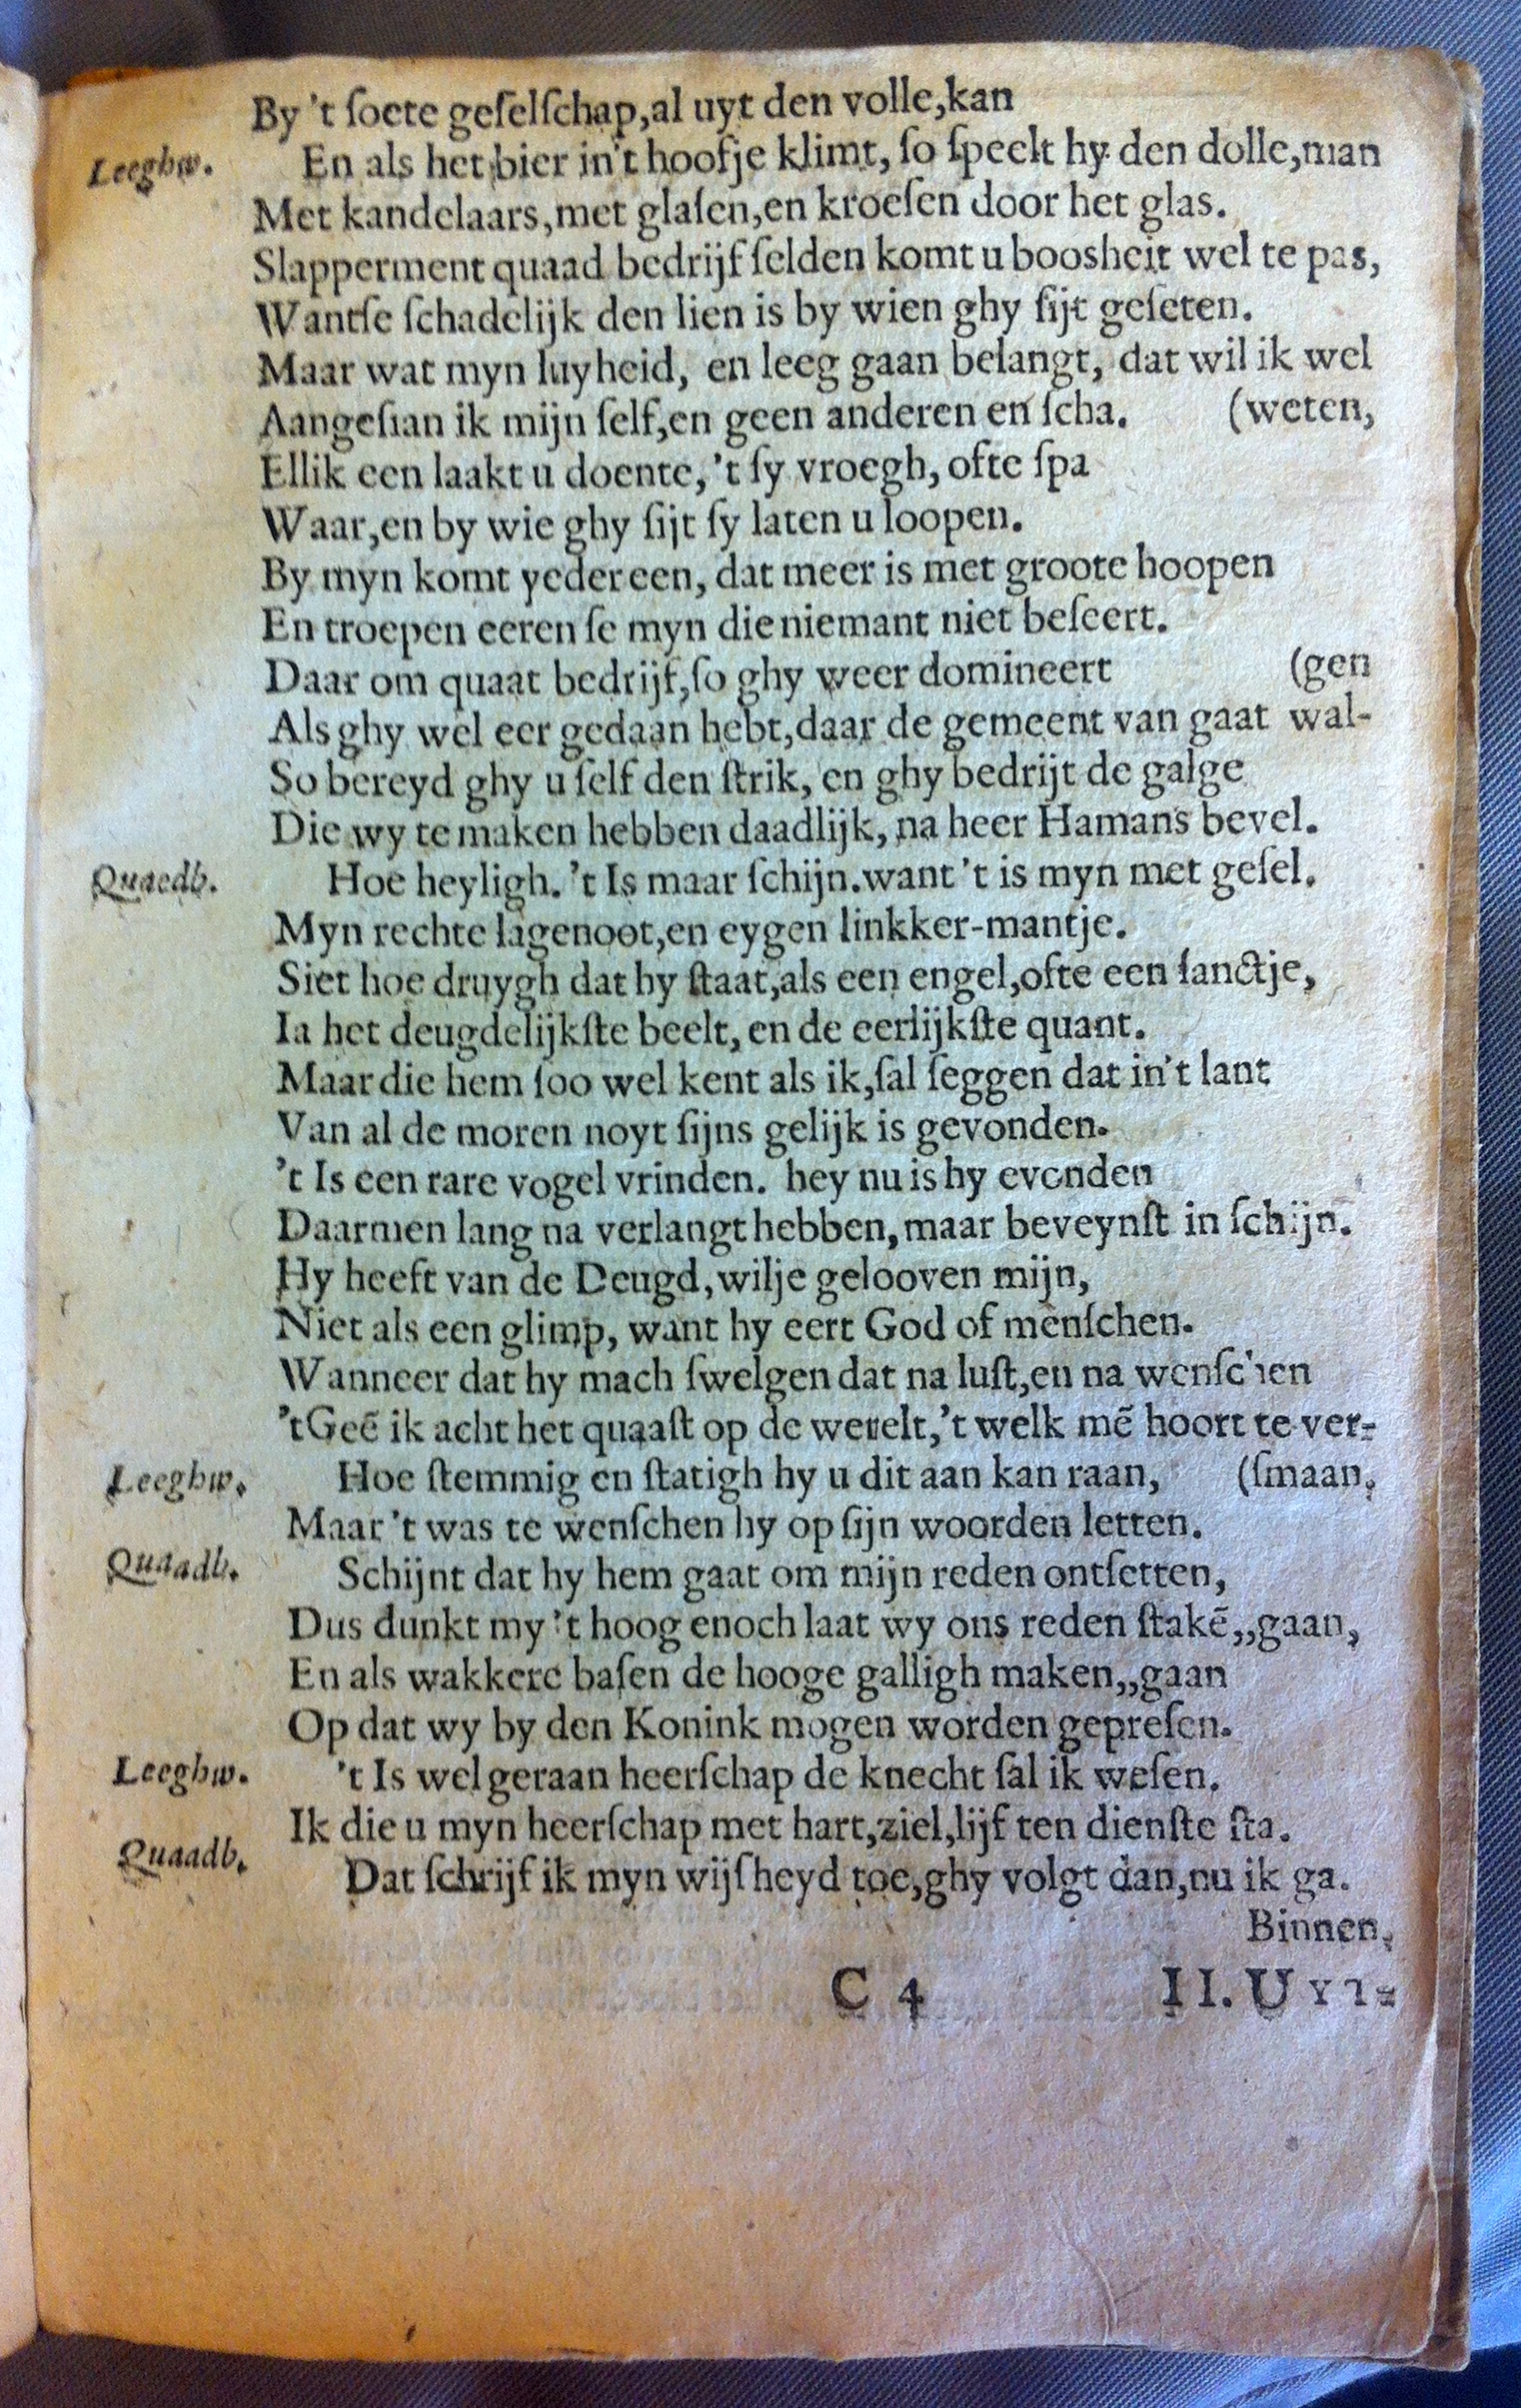 By 't ſoete geſelſchap,al uyt den volle,kan
Leeghw. En als het bier in't hoofje klimt, ſo ſpeelt hy den dolle,man
Met kandelaars,met glaſen,en kroeſen door het glas.
Slapperment quaad bedrijf ſelden komt u boosheit wel te pas,
Wantſe ſchadelijk den lien is by wien ghy ſijt geſeten.
Maar wat myn luyheid, en leeg gaan belangt, dat wil ik wel
Aangeſian ik mijn ſelf,en geen anderen en ſcha. (weten,
Ellik een laakt u doente, 't ſy vroegh, ofte ſpa
Waar,en by wie ghy ſijt ſy laten u loopen.
By myn komt yeder een, dat meer is met groote hoopen
En troepen eeren ſe myn die niemant niet beſeert.
Daar om quaat bedrijf,ſo ghy weer domineert (gen
Als ghy wel eer gedaan hebt,daar de gemeent van gaat wal-
So bereyd ghy u ſelf den ſtrik, en ghy bedrijt de galge
Die wy te maken hebben daadlijk, na heer Hamans bevel.
Quaedb. Hoe heyligh. 't Is maar ſchijn.want 't is myn met geſel.
Myn rechte lagenoot,en eygen linkker-mantje.
Siet hoe druygh dat hy ſtaat,als een engel,ofte een ſanctje,
Ia het deugdelijkſte beelt, en de eerlijkſte quant.
Maar die hem ſoo wel kent als ik,ſal ſeggen dat in't lant
Van al de moren noyt ſijns gelijk is gevonden.
't Is een rare vogel vrinden. hey nu is hy evonden
Daarmen lang na verlangt hebben, maar beveynſt in ſchijn.
Hy heeft van de Deugd,wilje gelooven mijn,
Niet als een glimp, want hy eert God of menſchen.
Wanneer dat hy mach ſwelgen dat na luſt,en na wenſchen
't Geē ik acht het quaaſt op de werelt,'t welk mē hoort te ver-
Leeghw. Hoe ſtemmig en ſtatigh hy u dit aan kan raan, (ſmaan,
Maar 't was te wenſchen hy op ſijn woorden letten.
Quaadb. Schijnt dat hy hem gaat om mijn reden ontſetten,
Dus dunkt my 't hoog enoch laat wy ons reden ſtakē,,gaan,
En als wakkere baſen de hooge galligh maken,,gaan
Op dat wy by den Konink mogen worden gepreſen.
Leeghw. 't Is wel geraan heerſchap de knecht ſal ik weſen.
Ik die u myn heerſchap met hart,ziel,lijf ten dienſte ſta.
Quaadb. Dat ſchrijf ik myn wijſheyd toe,ghy volgt dan,nu ik ga.
Binnen.
C 4 II. UYT-